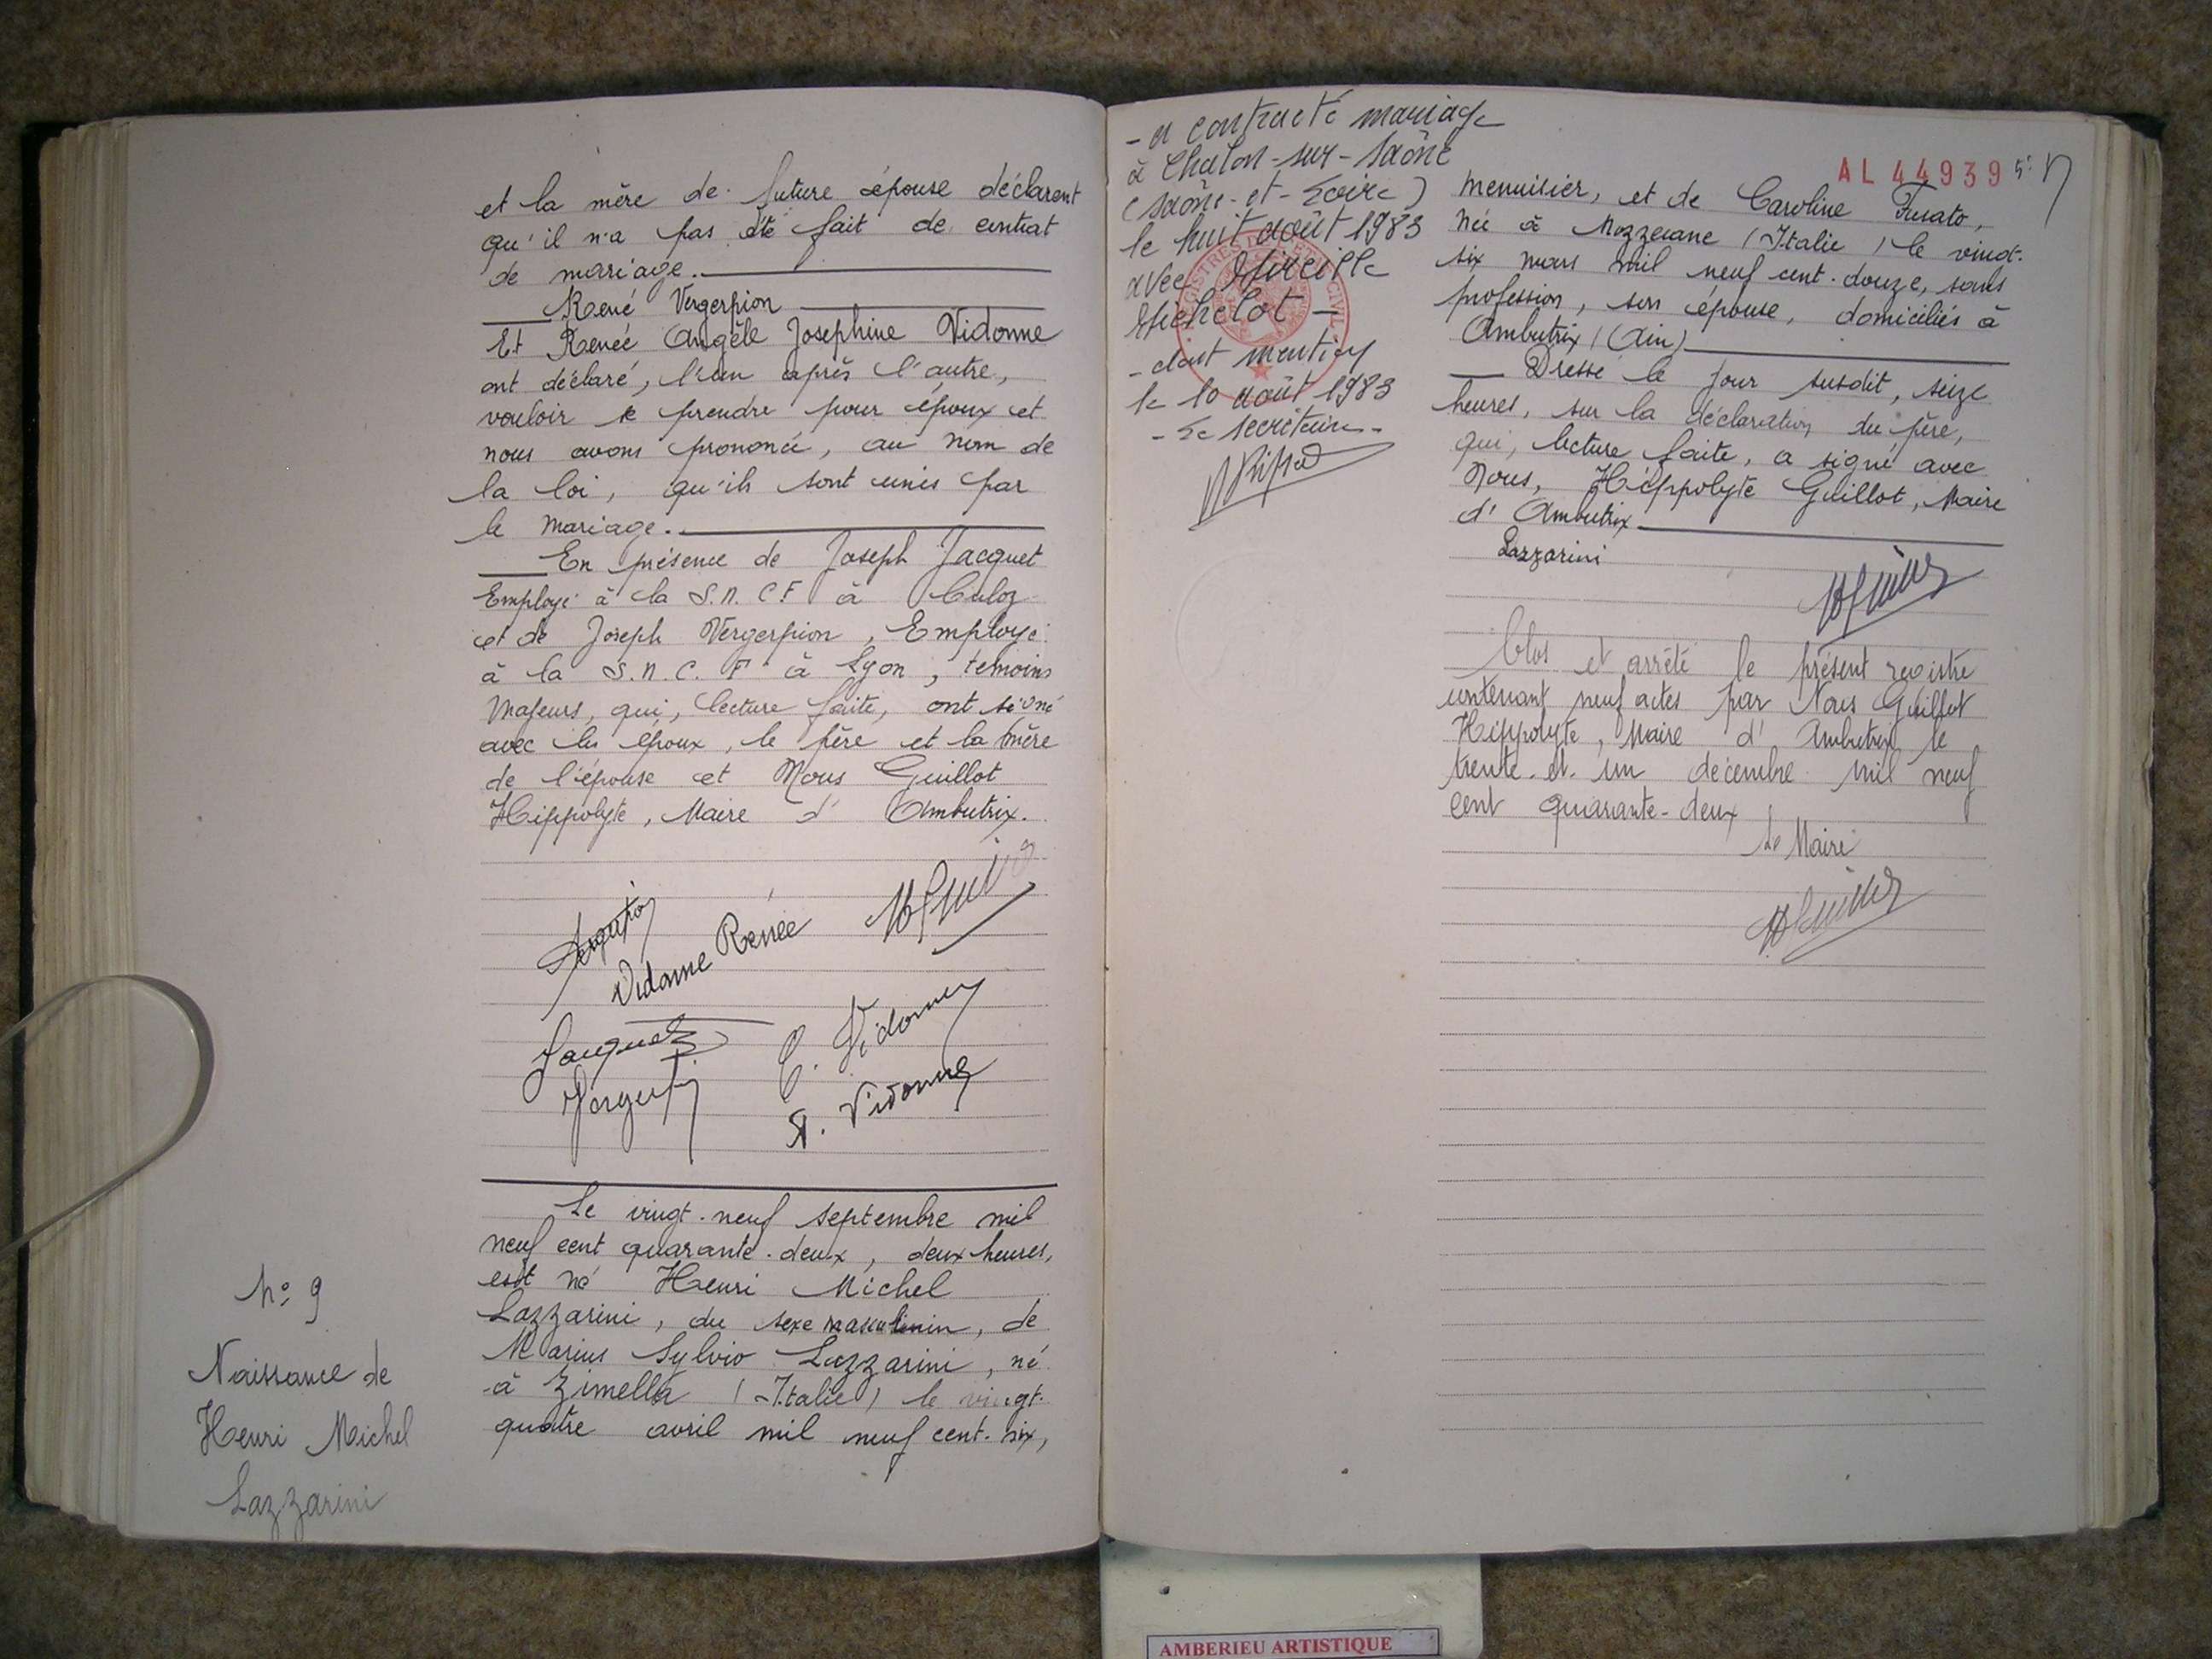 et la mère de future épouse déclarent
qu'il n'a pas été fait de contrat
de mariage.
René Vergerpion
Et Renée Angèle Josephine Vidonne
ont déclaré, l'un après l'autre,
vouloir se prendre pour époux et
nous avons prononcé, au nom de
la loi, qu'ils sont unis par
le mariage.
En présence de Joseph Jacquet
Employé à la S.N.C.F à Culoz
et de Joseph Vergerpion, Employé
à la S.N.C.F à Lyon, témoins
Majeurs, qui, lecture faite, ont signé
avec les époux, le père et la mère
de l'épouse et Nous Guillot
Hippolyte, Maire d' Ambutrix.
Vidonne Renée
Jacquet
C. Vidonne
A. Vidonne
N° 9
Naissance de
Henri Michel
Lazzarini
Le vingt-neuf septembre mil
neuf cent quarante-deux, deux heures,
est né Henri Michel
Lazzarini, du sexe masculinin, de
Marius Sylvio Lazzarini, né
à Zimella (Italie) le vingt-
quatre avril mil neuf cent-six,
- a contracté mariage
à Chalon-sur-Saône
(Saône-et-Loire)
le huit août 1983
avec Mireille
Michelot -
- dont mention
le 10 août 1983
- Le secrétaire -
AL 44939
menuisier, et de Caroline Fusato,
née à Mozzecane (Italie) le vingt-
six mars mil neuf cent-douze, sans
profession, son épouse, domiciliés à
Ambutrix (Ain)
Dressé le jour susdit, seize
heures, sur la déclaration du père,
qui, lecture faite, a signé avec
Nous, Hippolyte Guillot, Maire
d' Ambutrix
Lazzarini
Clos et arrêté le présent registre
contenant neuf actes par Nous Guillot
Hippolyte, Maire d' Ambutrix le
trente-et-un décembre mil neuf
cent quarante-deux
Le Maire
HGuillot
AMBERIEU ARTISTIQUE